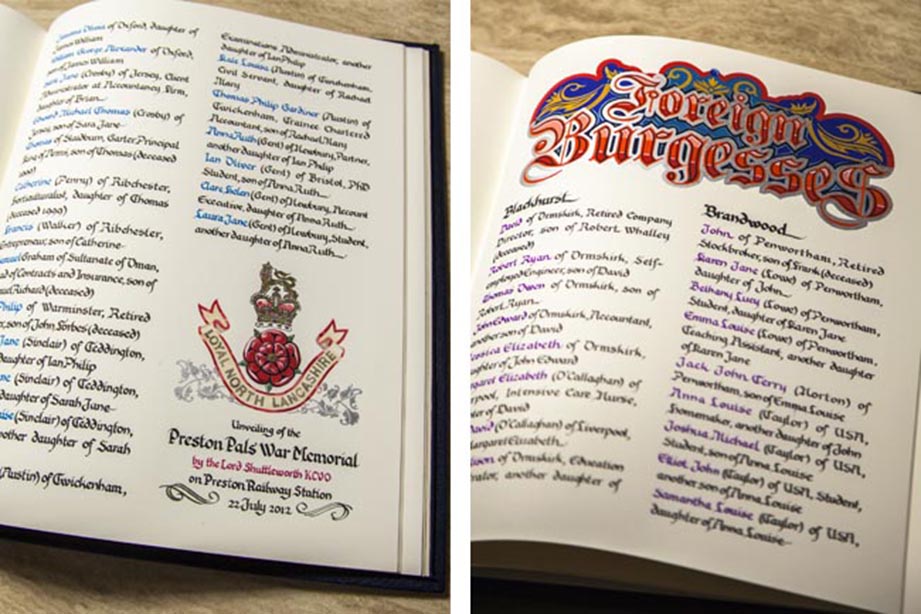 of Oxford, daughter of
James William
William George Alexander of Oxford,
son of James William
Jane (Crosby) of Jersey, Client
Administrator at Accountancy Firm,
daughter of Brian
Edward Michael Thomas (Crosby) of
Jersey, son of Sara Jane
Thomas of Staudoun, Garter Principal
King of Arms, son of Thomas (deceased
Catherine (Penny) of Ribchester,
Horticulturalist, daughter of Thomas
(deceased 1999)
Francis (Walker) of Ribchester,
Entrepreneur, son of Catherine
Graham of Sultanate of Oman,
Head of Contracts and Insurance, son of
Richard (deceased)
Philip of Warminster, Retired
son of John Forbes (deceased)
Jane (Sinclair) of Teddington,
daughter of Ian Philip
(Sinclair) of Teddington,
daughter of Sarah Jane
(Sinclair) of Teddington,
another daughter of Sarah
(Austin) of Twickenham,
Examinations Administrator, another
daughter of Ian Philip
Kate Louise (Austin) of Twickenham,
Civil Servant, daughter of Rachael
Mary
Thomas Philip Gardiner (Austin) of
Twickenham, Trainee Chartered
Accountant, son of Rachael Mary
Anna Ruth (Gent) of Newbury, Partner,
another daughter of Ian Philip
Ian Oliver (Gent) of Bristol, PhD
Student, son of Anna Ruth
Clare Helen (Gent) of Newbury, Account
Executive, daughter of Anna Ruth
Laura Jane (Gent) of Newbury, Student,
another daughter of Anna Ruth
LOYAL NORTH LANCASHIRE
Unveiling of the
Preston Pals' War Memorial
by the Lord Shuttleworth KCVO
on Preston Railway Station
22 July 2012
Foreign
Burgesses
Blackhurst
David of Ormskirk, Retired Company
Director, son of Robert Whalley
(deceased)
Robert Ryan of Ormskirk, Self-
employed Engineer, son of David
Thomas Owen of Ormskirk, son of
Robert Ryan
John Edward of Ormskirk, Accountant,
another son of David
Jessica Elizabeth of Ormskirk,
daughter of John Edward
Margaret Elizabeth (O'Callaghan) of
Liverpool, Intensive Care Nurse,
daughter of David
David (O'Callaghan) of Liverpool,
Margaret Elizabeth
of Ormskirk, Education
another daughter of
Brandwood
John of Penwortham, Retired
Stockbroker, son of Frank (deceased)
Karen Jane (Lowe) of Penwortham,
daughter of John
Bethany Lucy (Lowe) of Penwortham,
Student, daughter of Karen Jane
Emma Louise (Lowe) of Penwortham,
Teaching Assistant, another daughter
of Karen Jane
Jack John Terry (Horton) of
Penwortham, son of Emma Louise
Anna Louise (Taylor) of USA,
Homemaker, another daughter of John
Joshua Michael (Taylor) of USA,
Student, son of Anna Louise
Elliot John (Taylor) of USA, Student,
another son of Anna Louise
Samantha Louise (Taylor) of USA,
daughter of Anna Louise